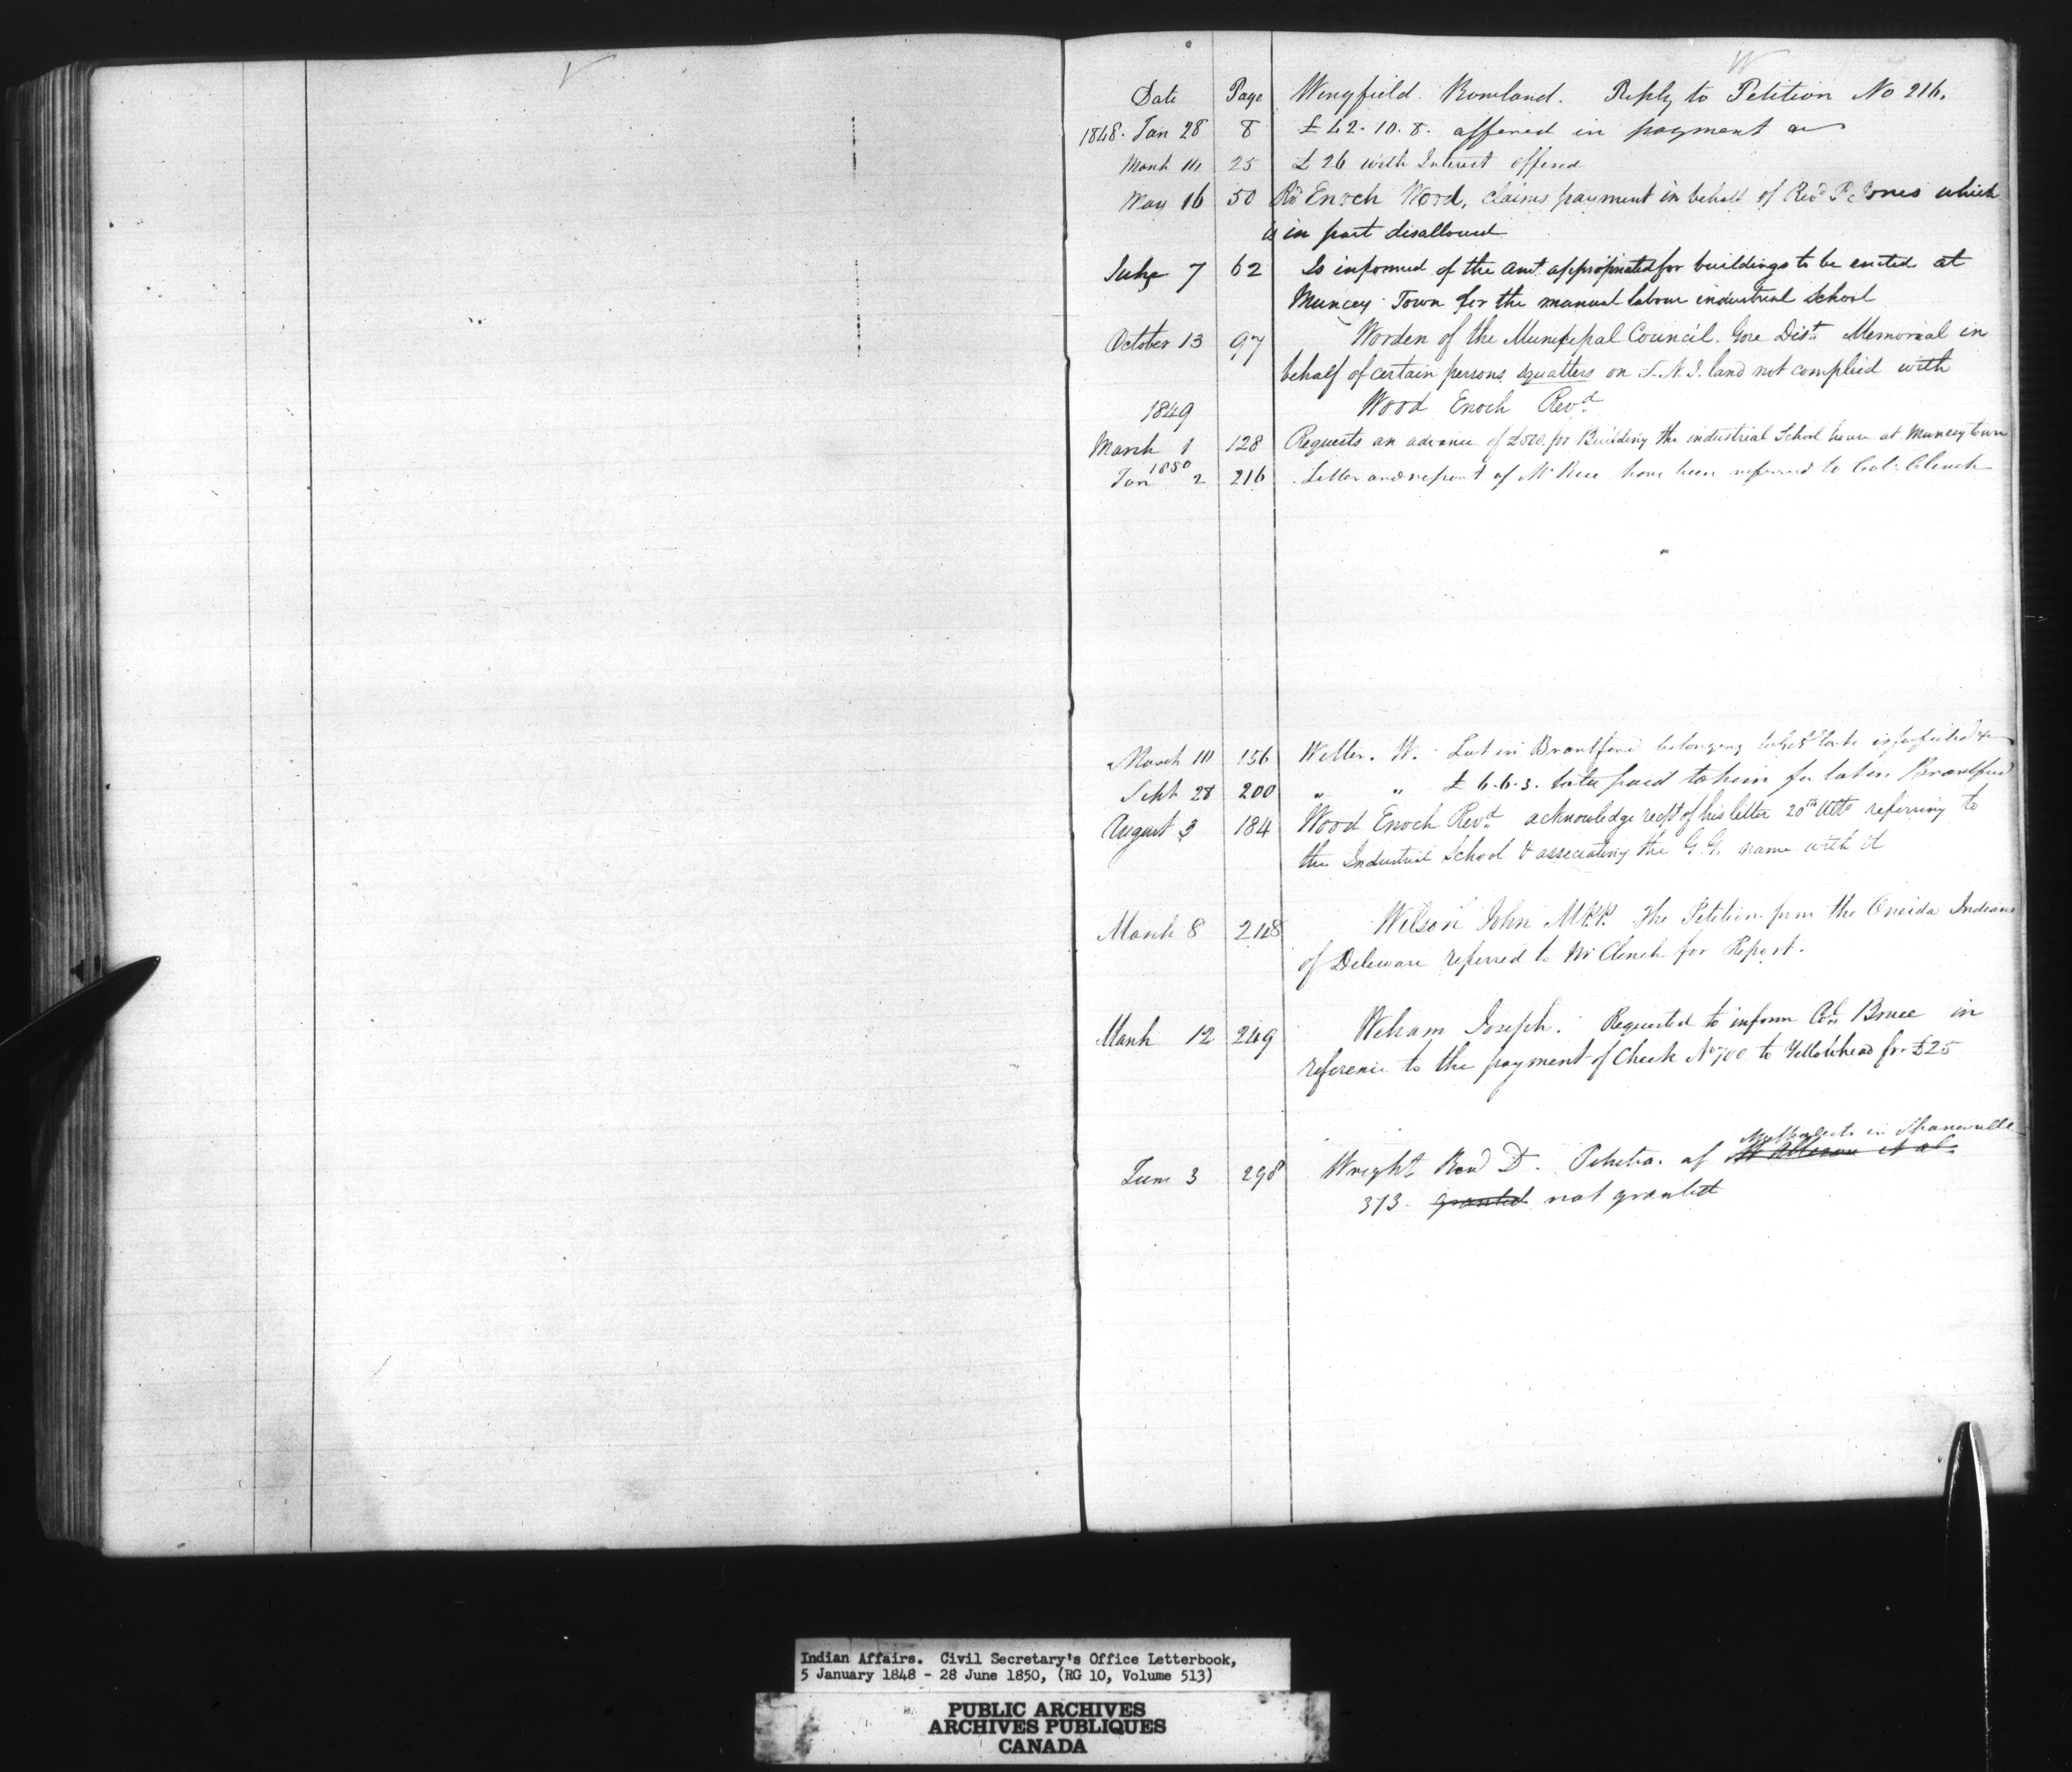 V
W
Date Page Wingfield Rowland. Reply to Petition No 216.
1848. Jan 28 8 £42.10.8. offered in payment
March 14 25 £26 with Interest offered
May 16 50 Rd Enoch Wood, claims payment in behalf of Revd P. Jones which
is in part disallowed
June 7 62 Is informed of the amt appropriated for buildings to be erected at
Muncey Town for the manual labour industrial School
October 13 97 Warden of the Municipal Council. Gore Dist. Memorial in
behalf of certain persons squatters on S.N.I. land not complied with
1849 Wood Enoch Revd
March 1 128 Requests an advance of £500 for Building the industrial School house at Munceytown
1850
Jan 2 216 Letter and report of Mr have been referred to Col. Clench
March 10 156 Weller. W. Lot in Brantford belonging
Sept 28 200 " " £6.6.3. paid to him for lot in Brantford
August 3 184 Wood Enoch Revd acknowledge rect of his letter 20th Ulto referring to
the Industrial School & associating the G.G. name with it
March 8 248 Wilson John M.P.P. The Petition from the Oneida Indians
of Delaware referred to Mr Clench for Report.
March 12 249 Joseph. Requested to inform Col. Bruce in
reference to the payment of Check No 700 to Yellowhead for £25
Methodists in Shanonville
June 3 298 Wright Revd D. Petition of et al.
373 granted not granted
Indian Affairs. Civil Secretary's Office Letterbook,
5 January 1848 - 28 June 1850, (RG 10, Volume 513)
PUBLIC ARCHIVES
ARCHIVES PUBLIQUES
CANADA